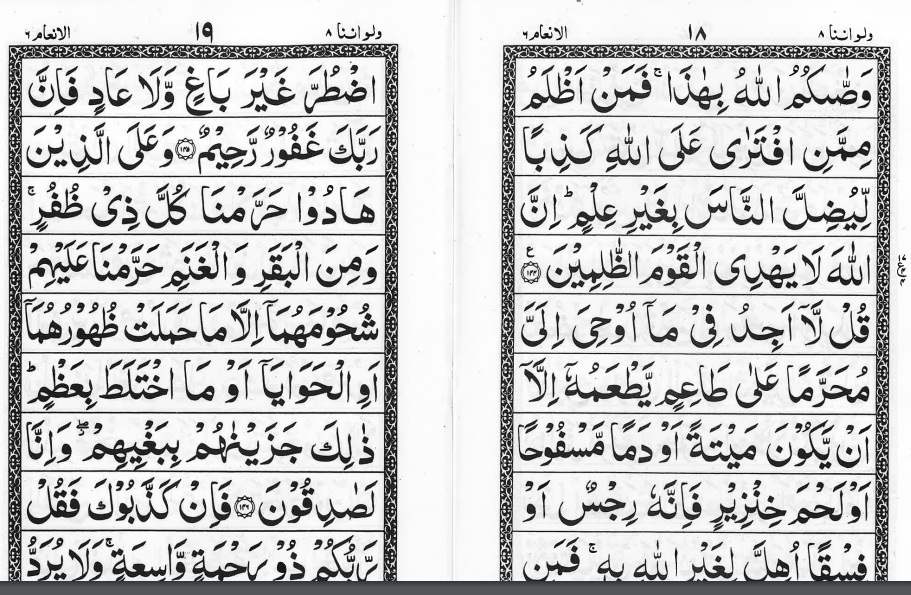 ولواننا ٨ ١٨ الانعام ٦
وَصّٰىكُمُ اللّٰهُ بِهٰذَا ۚ فَمَنْ اَظْلَمُ
مِمَّنِ افْتَرٰى عَلَى اللّٰهِ كَذِبًا
لِّيُضِلَّ النَّاسَ بِغَيْرِ عِلْمٍ ؕ اِنَّ
اللّٰهَ لَا يَهْدِى الْقَوْمَ الظّٰلِمِيْنَ ﴿١٤٤﴾ ع
قُلْ لَّاۤ اَجِدُ فِىْ مَاۤ اُوْحِىَ اِلَىَّ
مُحَرَّمًا عَلٰى طَاعِمٍ يَّطْعَمُهٗۤ اِلَّاۤ
اَنْ يَّكُوْنَ مَيْتَةً اَوْ دَمًا مَّسْفُوْحًا
اَوْ لَحْمَ خِنْزِيْرٍ فَاِنَّهٗ رِجْسٌ اَوْ
فِسْقًا اُهِلَّ لِغَيْرِ اللّٰهِ بِهٖ ۚ فَمَنِ
ولواننا ٨ ١٩ الانعام ٦
اضْطُرَّ غَيْرَ بَاغٍ وَّلَا عَادٍ فَاِنَّ
رَبَّكَ غَفُوْرٌ رَّحِيْمٌ ﴿١٤٥﴾ وَعَلَى الَّذِيْنَ
هَادُوْا حَرَّمْنَا كُلَّ ذِىْ ظُفُرٍ ۚ
وَمِنَ الْبَقَرِ وَالْغَنَمِ حَرَّمْنَا عَلَيْهِمْ
شُحُوْمَهُمَاۤ اِلَّا مَا حَمَلَتْ ظُهُوْرُهُمَاۤ
اَوِ الْحَوَايَاۤ اَوْ مَا اخْتَلَطَ بِعَظْمٍ ؕ
ذٰلِكَ جَزَيْنٰهُمْ بِبَغْيِهِمْ ۖ وَاِنَّا
لَصٰدِقُوْنَ ﴿١٤٦﴾ فَاِنْ كَذَّبُوْكَ فَقُلْ
رَّبُّكُمْ ذُوْ رَحْمَةٍ وَّاسِعَةٍ ۚ وَلَا يُرَدُّ